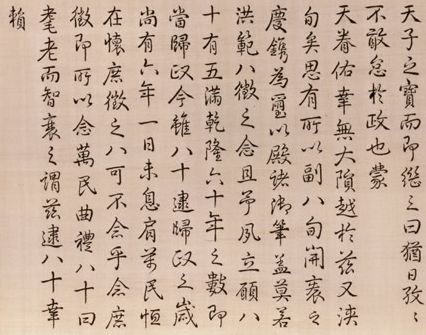 天子之寶而即繼之曰猶日孜〻
不敢怠於政也蒙
天眷佑幸無大隕越於茲又浹
旬矣思有所以副八旬開袠之
慶鐫為璽以殿諸御筆蓋莫若
洪範八徵之念且予夙立願八
十有五滿乾隆六十年之數即
當歸政今雖八十逮歸政之歲
尚有六年一日未息肩萬民恒
在懷庶徵之八可不念乎念庶
徵即所以念萬民曲禮八十曰
耄老而智衰之謂茲逮八十幸
賴